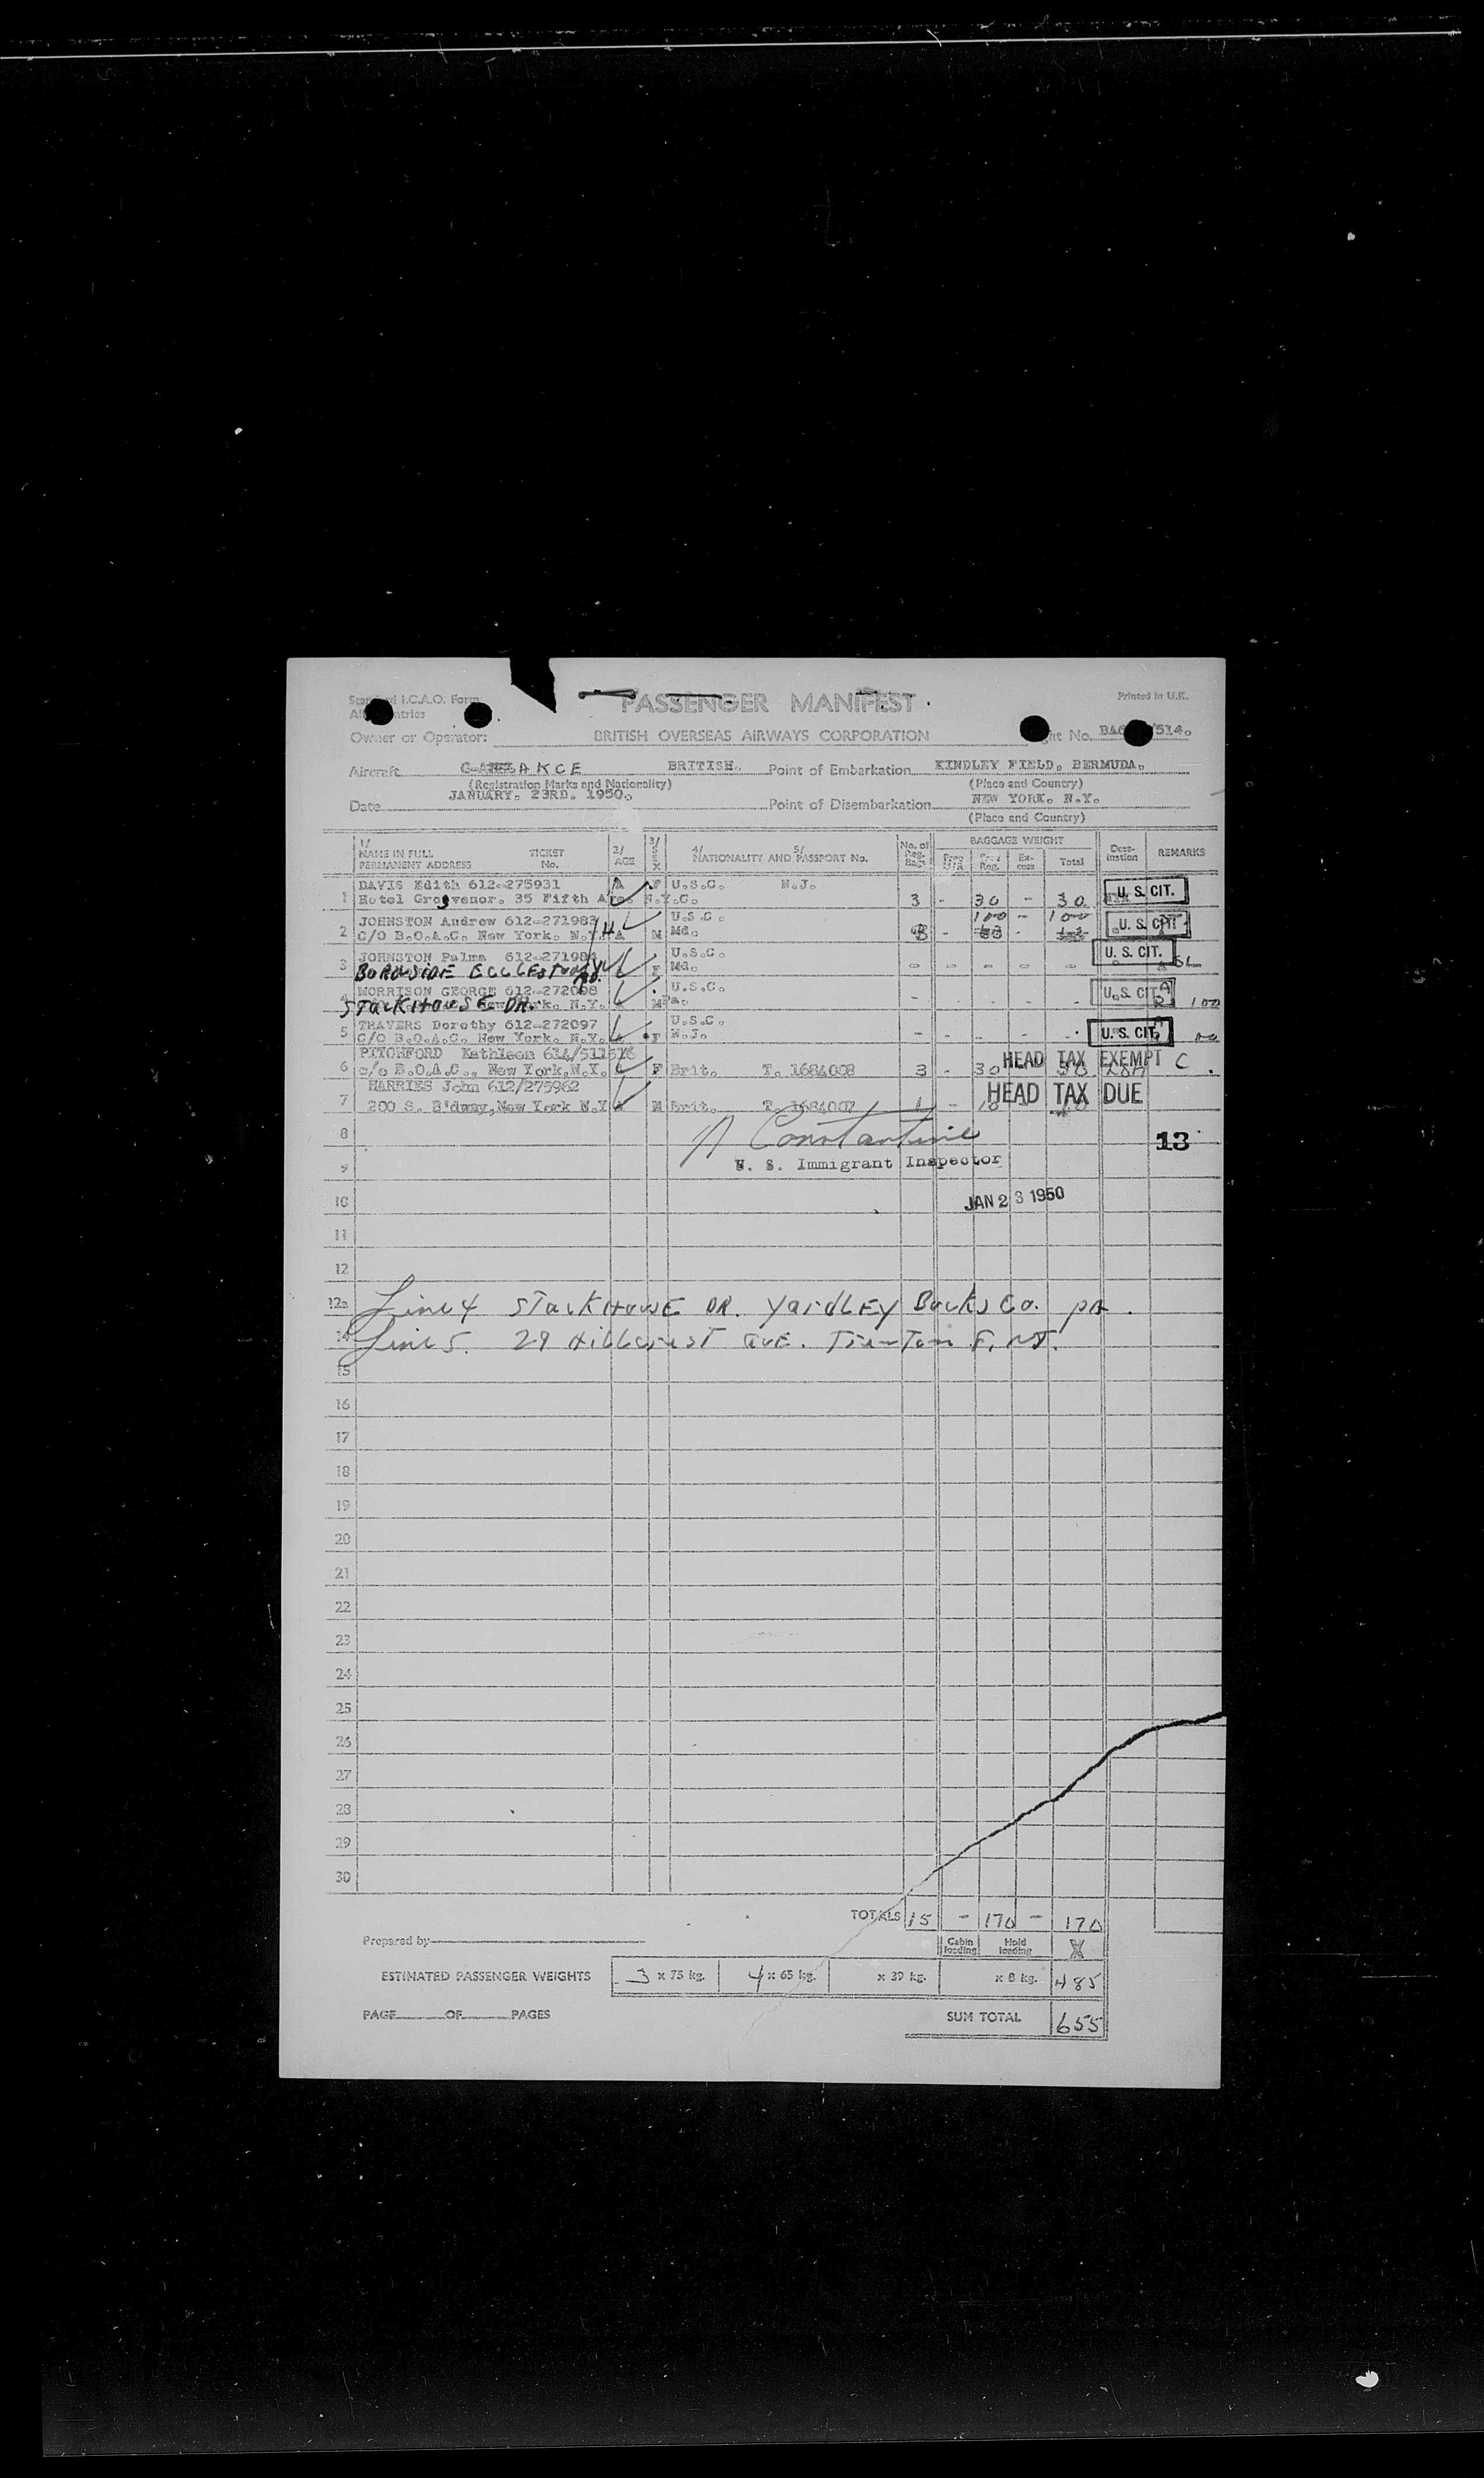 Standard I.C.A.O. Form
All Countries
PASSENGER MANIFEST
Printed in U.K.
Owner or Operator: BRITISH OVERSEAS AIRWAYS CORPORATION
Flight No. /514.
Aircraft G- AKCE BRITISH. Point of Embarkation KINDLEY FIELD. BERMUDA.
(Registration Marks and Nationality) (Place and Country)
Date JANUARY. 23RD. 1950. Point of Disembarkation NEW YORK. N.Y.
(Place and Country)
1/ NAME IN FULL PERMANENT ADDRESS TICKET No. 2/ AGE 3/ SEX 4/ 5/ NATIONALITY AND PASSPORT No. No. of Reg. Bags BAGGAGE WEIGHT Free Reg. Ex-cess Total Dest-ination REMARKS
1 DAVIS Edith 612-275931 A F U.S.C. N.J.
Hotel Grosvenor. 35 Fifth Ave. N.Y.C. 3 - 30 - 30 U. S. CIT.
JOHNSTON Andrew 612-271983 U.S.C. 100 - 100
2 C/O B.O.A.C. New York. N.Y. A M Md. U. S. CIT.
3 JOHNSTON Palma 612-271984 U.S.C. U. S. CIT.
BURNSIDE ECCLESTON Md. F Md. - - - - -
4 MORRISON GEORGE 612-272098 U.S.C. U. S. CIT.
STACKHOUSE DR. York. N.Y. A M Pa. 100
5 TRAVERS Dorothy 612-272097 U.S.C.
C/O B.O.A.C. New York. N.Y. A F N.J. U. S. CIT.
PITCHFORD Kathleen 614/511516 HEAD TAX EXEMPT C
6 c/o B.O.A.C., New York, N.Y. F Brit. T. 1684008 3 - 30
HARRIES John 612/275962 HEAD TAX DUE
7 200 S. B'dway, New York N.Y A M Brit. T. 1684007 1 - 10
8 N Constantine 13
9 U. S. Immigrant Inspector
10 JAN 23 1950
11
12
12a Line 4 STACKHOUSE DR. YARDLEY Bucks Co. PA.
14 Line 5. 29 Hillcrest AVE. Trenton 8, NJ.
15
16
17
18
19
20
21
22
23
24
25
26
27
28
29
30
TOTALS 15 - 170 - 170
Prepared by Cabin loading Hold loading X
ESTIMATED PASSENGER WEIGHTS 3 x 75 kg. 4 x 65 kg. x 39 kg. x 8 kg. 485
PAGE OF PAGES SUM TOTAL 655